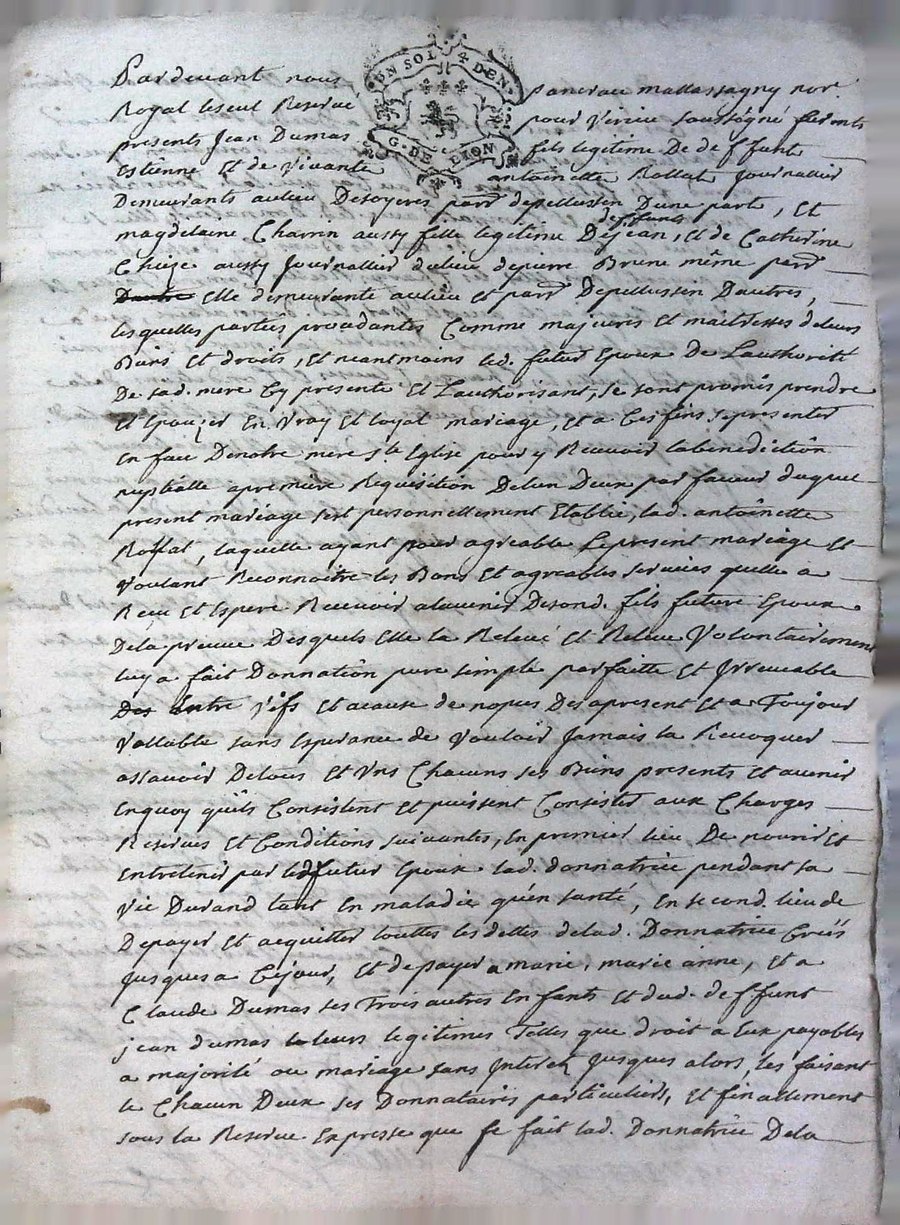 UN SOL 4 DEN.
G. DE LION
Pardevant nous pancrace mattassagny nore.
Royal et seul Reservé pour virieu soussigné furents
presents Jean Dumas fils legitime De deffunt
Estienne Et de vivante antoinette Rollat Journallier
Demeurants aulieu Desoyeres parr. depellussin Dune part, Et
magdelaine Charrin aussy fille legitime De deffunts jean, et de Catherine
Chieze aussy Journallier dulieu depierre Brune même parr.
Dautre elle demeurante aulieu et parr. Depellussin Dautres,
lesquelles parties procedantes Comme majeures et maitresses deleurs
Biens et droits, et neantmoins led. futur Epoux de Lauthorité
De sad. mere Cy presente et Lauthorisant, se sont promis prendre
et Epouzer En vray et loyal mariage, et a Ces fins se presenter
en face Denotre mere Ste. Eglise pour y Recevoir labenediction
nuptialle apremiere Requisition Delun Deux par faveur duquel
present mariage sest personnellement Etablie, lad. antoinette
Rollat, laquelle ayant pour agreable Lepresent mariage et
voulant Reconnoitre les Bons et agreables services quelle a
Receu et Espere Recevoir alavenir Desond. fils futur Epoux
Dela preuve Desquels elle la Relevé et Releve volontairement
luy a fait Donnation pure simple parfaitte et Irrevocable
Des Entre vifs et acause de nopces Desapresent et a Toujour
vallable sans Esperance de vouloir Jamais la Revoquer
assavoir Detous et uns Chacuns ses Biens presents et avenir
Enquoy quils Consistent et puissent Consister aux Charges
Reserves et Conditions suivantes, En premier lieu De nourir et
Entretenir par led. futur Epoux lad. donnatrice pendant sa
vie Durand tant En maladie qu'en santé, En second lieu de
Depayer et acquitter touttes les dettes delad. Donnatrice Créés
Jusques a Cejour, et depayer a marie, marie anne, et a
Claude Dumas ses Trois autres Enfants et dud. deffunt
jean dumas leurs legitimes Telles que droit a Eux payables
a majorité ou mariage sans Interet Jusques alors, les faisant
le Chacun Deux ses Donnataires particuliers, et finallement
sous la Reserve Expresse que se fait lad. Donnatrice Dela